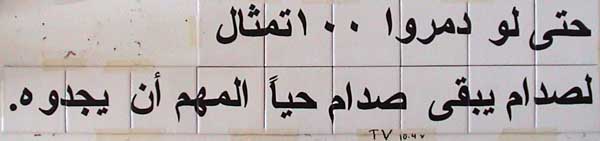 حتى لو دمروا ١٠٠ تمثال
لصدام يبقى صدام حياً المهم أن يجدوه.
TV